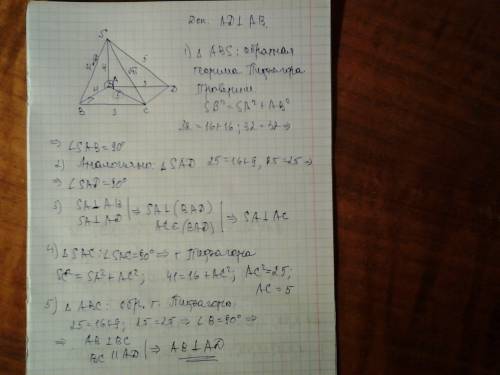 Доп. AD⊥AB
S
4√2
4
√41
5
4
A
3
D
5
B
3
C
1) △ ABS: обратная
теорема Пифагора
Проверим
SB² = SA² + AB²
32 = 16+16; 32=32 ⇒
⇒ ∠SAB = 90°
2) Аналогично △SAD 25=16+9, 25=25 ⇒
⇒ ∠SAD = 90°
3) SA⊥AB
SA⊥AD | ⇒ SA⊥(BAD)
AC∈(BAD) | ⇒ SA⊥AC
4) △SAC: ∠SAC=90° ⇒ т Пифагора
SC² = SA² + AC²; 41 = 16 + AC²; AC² = 25;
AC = 5
5) △ ABC: обр. т. Пифагора,
25 = 16+9; 25=25 ⇒ ∠B = 90° ⇒
⇒ AB ⊥ BC
BC ∥ AD | ⇒ AB ⊥ AD